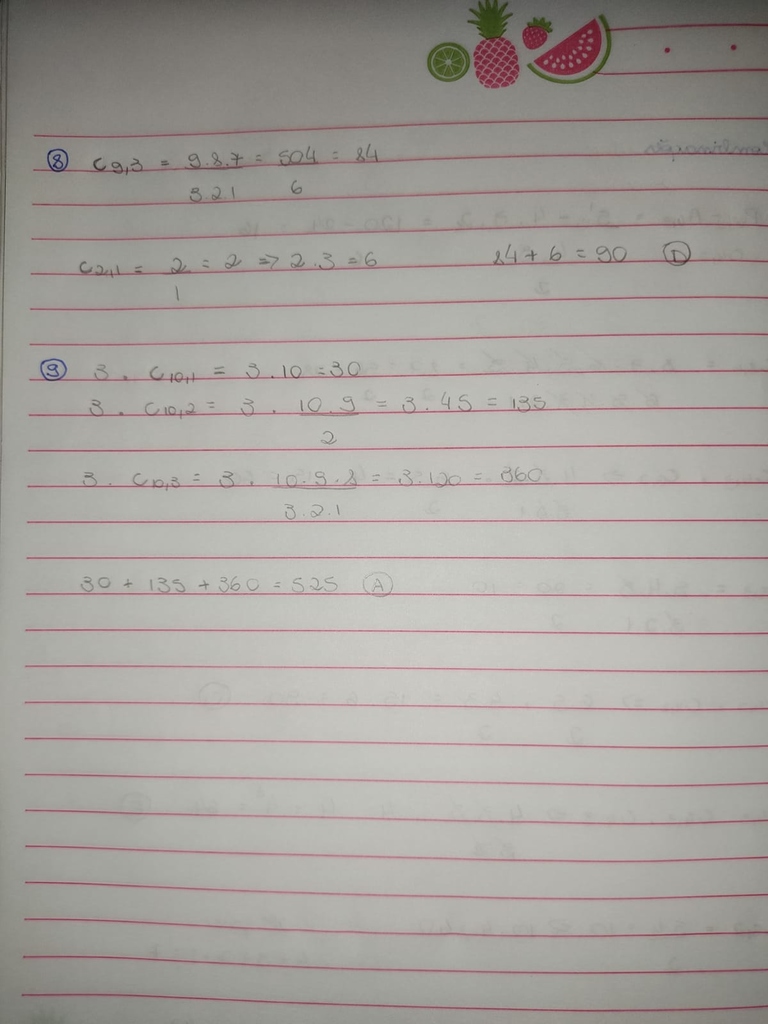 8 C9,3 = 9.8.7 = 504 = 84
3.2.1 6
C2,1 = 2 = 2 => 2.3 = 6 84 + 6 = 90 D
1
9 3 . C10,1 = 3 . 10 = 30
3 . C10,2 = 3 . 10.9 = 3 . 45 = 135
2
3 . C10,3 = 3 . 10.9.8 = 3.120 = 360
3.2.1
30 + 135 + 360 = 525 A